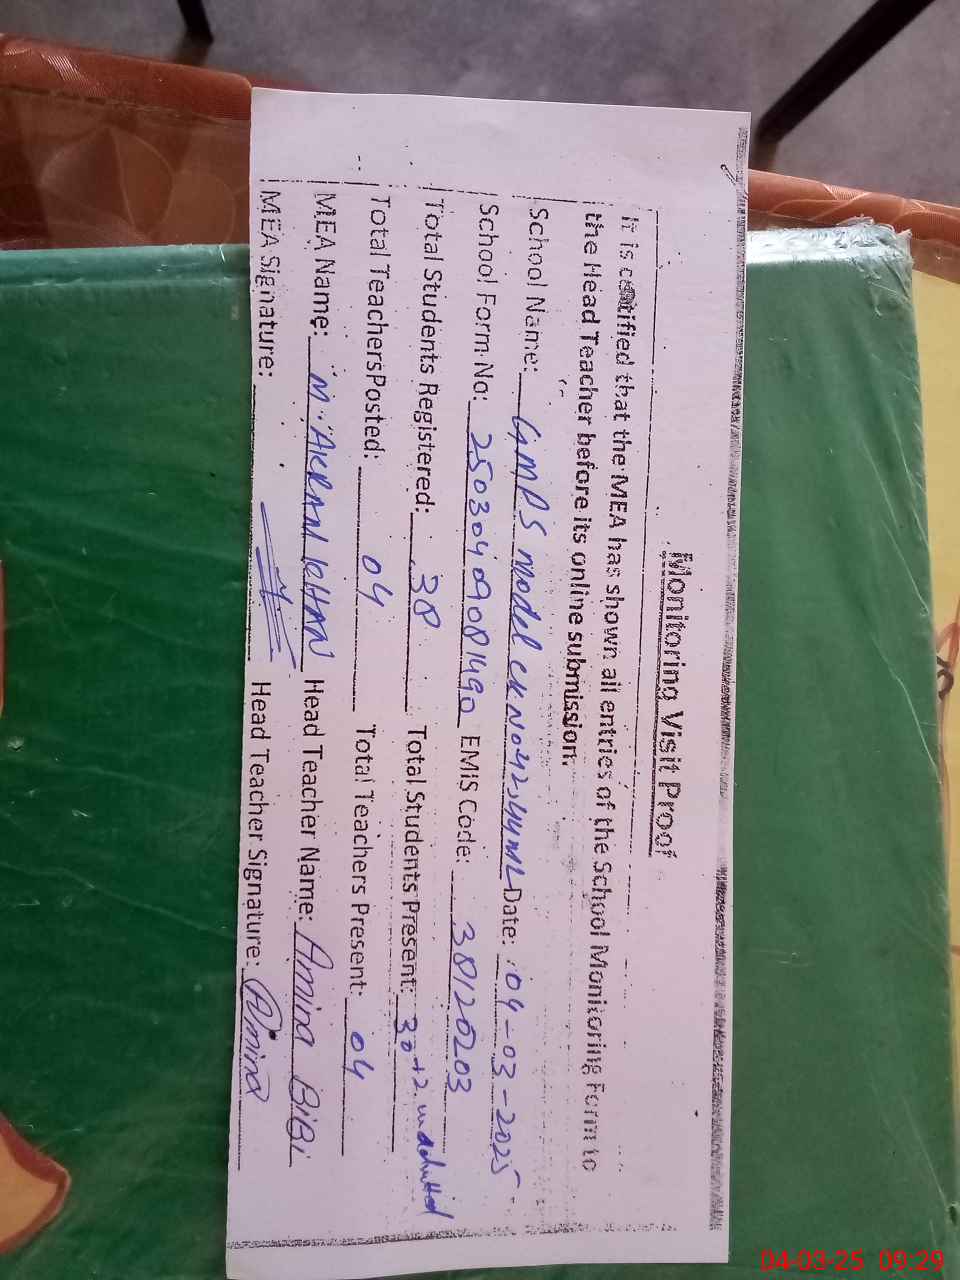 Monitoring Visit Proof
It is certified that the MEA has shown all entries of the School Monitoring Form to
the Head Teacher before its online submission.
School Name: GMPS Model CK No 42,44ML Date: 04-03-2025
School Form No: 25030409081490 EMIS Code: 38120203
Total Students Registered: 38 Total Students Present: 30+2 unadmitted
Total Teachers Posted: 04 Total Teachers Present: 04
MEA Name: M. AKRAM KHAN Head Teacher Name: Amina BiBi
MEA Signature: Head Teacher Signature: Amina
04-03-25 09:29